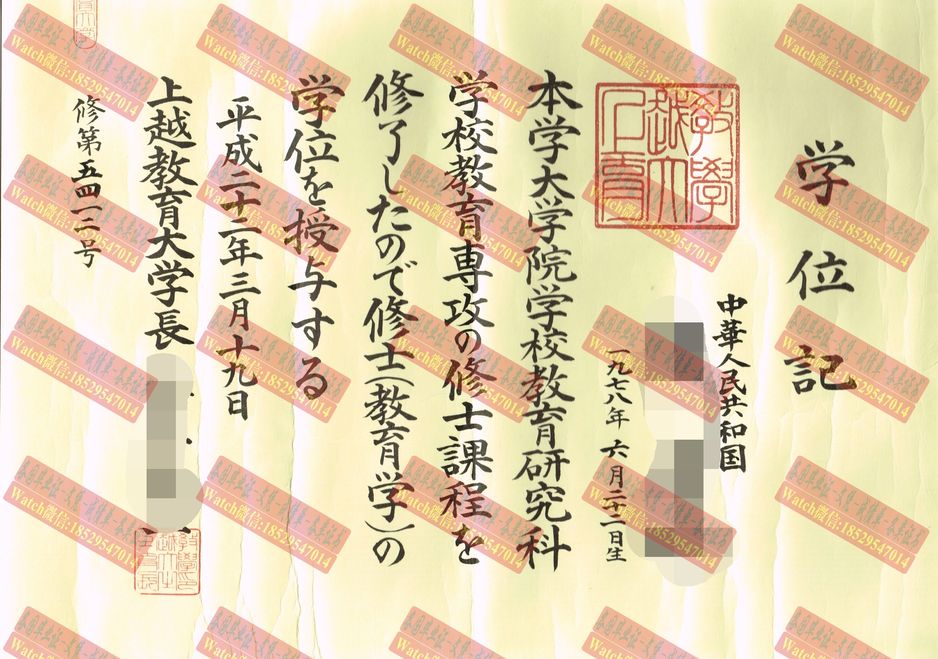 学位記
中華人民共和国
一九七八年 六月二十二日生
本学大学院学校教育研究科
学校教育専攻の修士課程を
修了したので修士(教育学)の
学位を授与する
平成二十二年三月十九日
上越教育大学長
修第五四一二号
Watch微信:18529547014